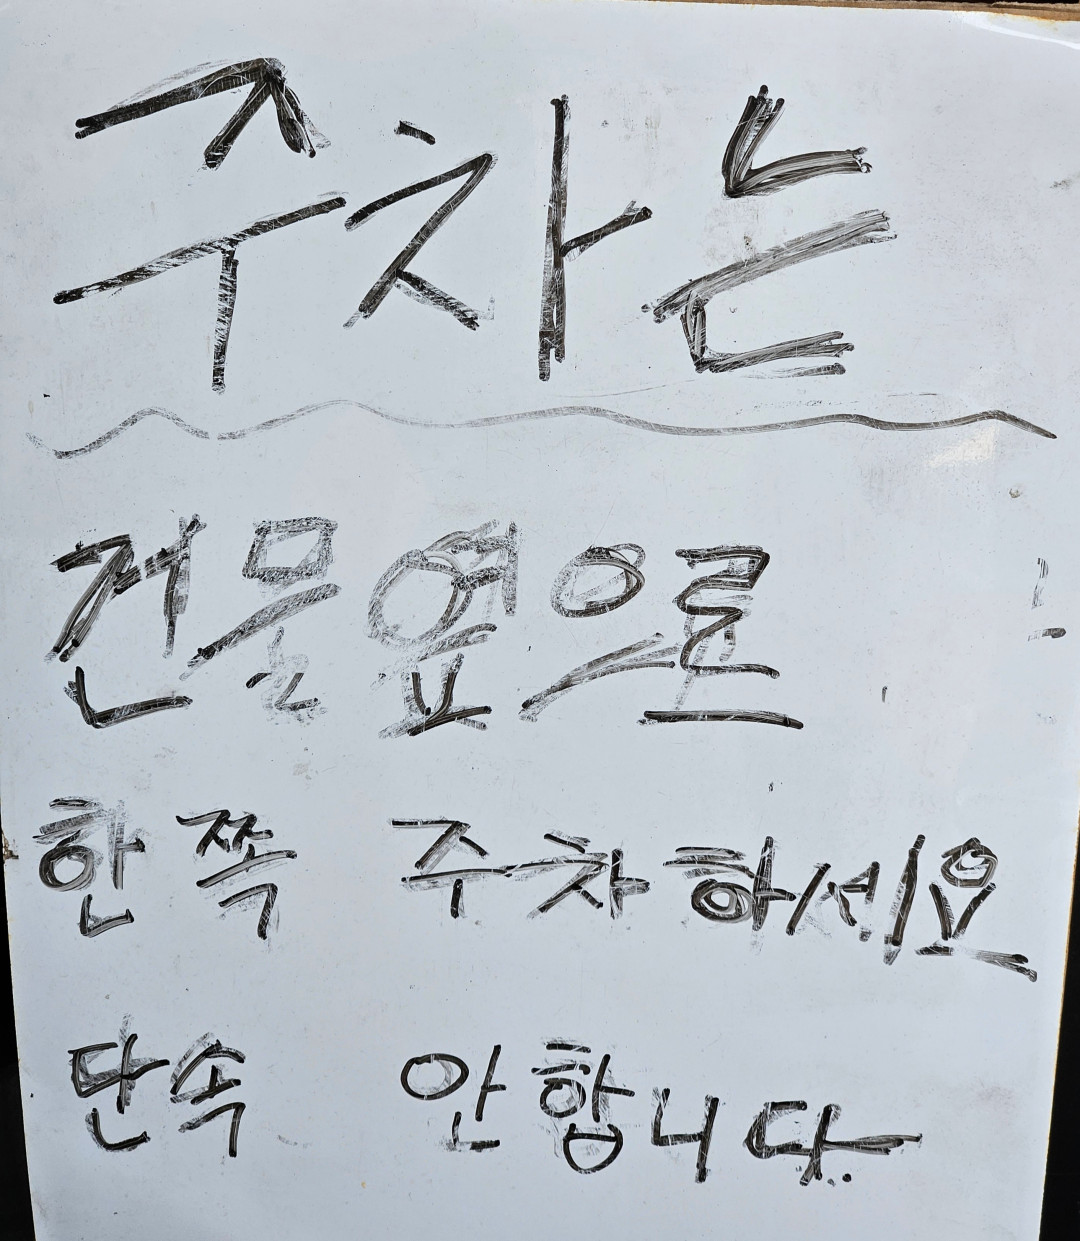 주차는
건물옆으로
한쪽 주차하세요
단속 안합니다.